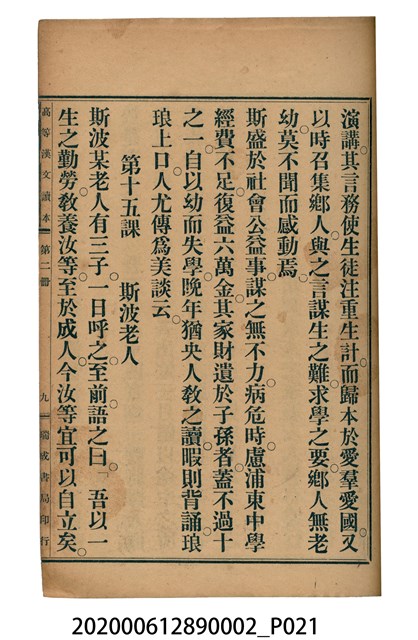 演講其言務使生徒注重生計而歸本於愛羣愛國。又
以時召集鄉人與之言謀生之難。求學之要。鄉人無老
幼莫不聞而感動焉
斯盛於社會公益事。謀之無不力。病危時。慮浦東中學
經費不足。復益六萬金。其家財遺於子孫者。蓋不過十
之一。自以幼而失學。晚年猶央人敎之讀。暇則背誦。琅
琅上口。人尤傳爲美談云
第十五課 斯波老人
斯波某老人。有三子。一日呼之至前。語之曰「吾以一
生之勤勞。敎養汝等。至於成人。今汝等宜可以自立矣。
高等漢文讀本 第二冊 九 瑞成書局印行
202000612890002_P021